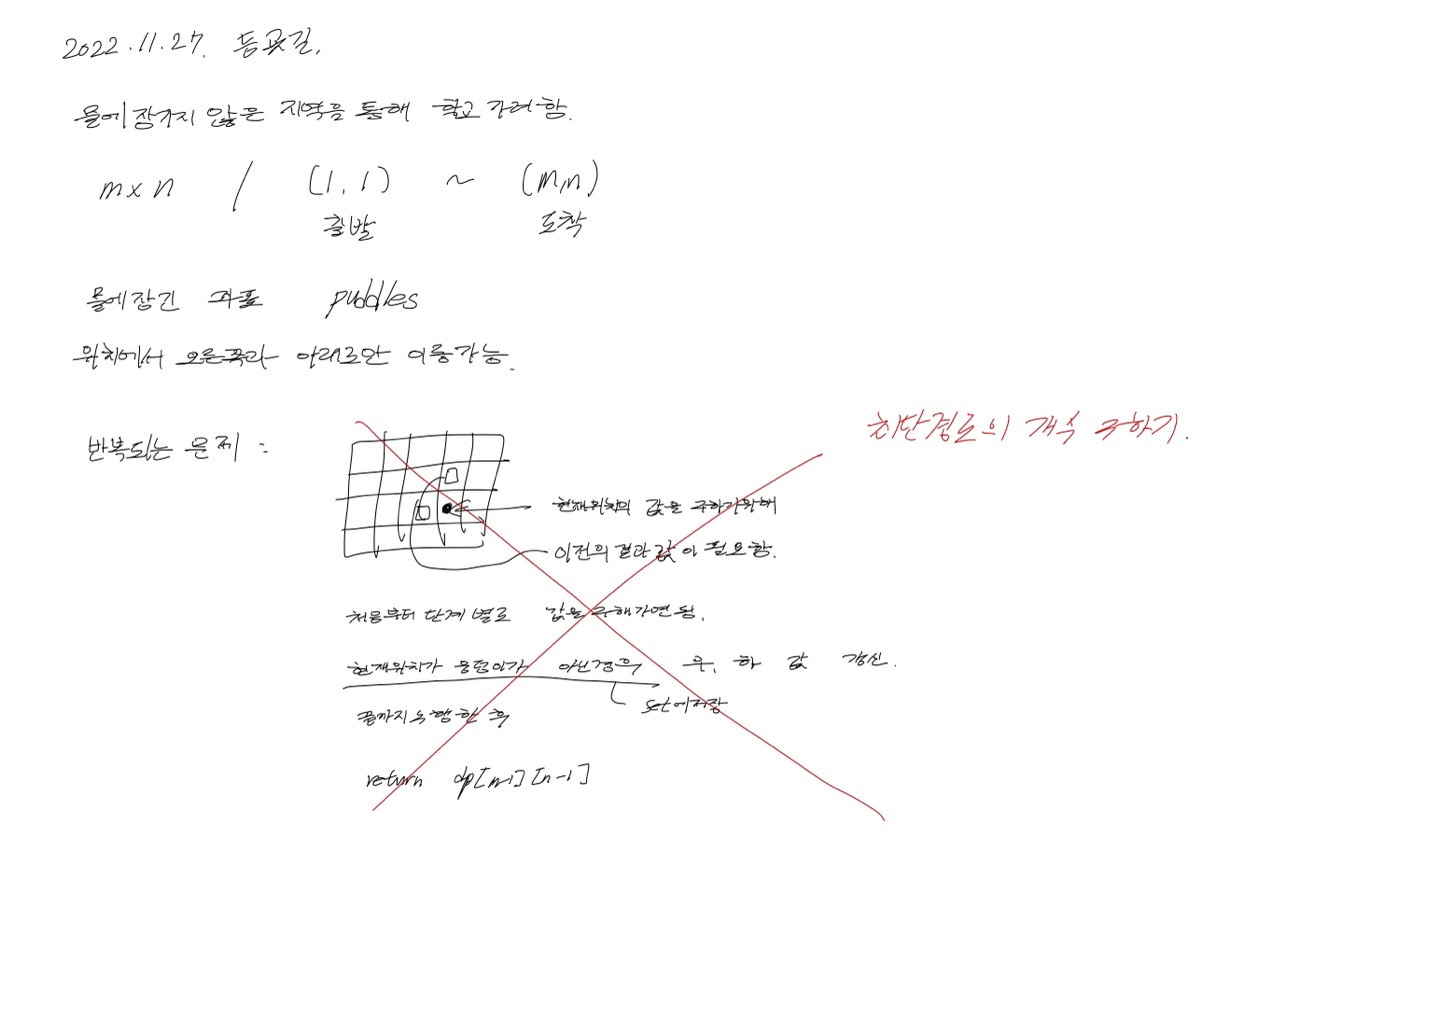 2022.11.27. 등굣길.
물에 잠기지 않은 지역을 통해 학교 가려 함.
m x n / (1, 1) ~ (m,n)
출발 도착
물에 잠긴 좌표 puddles
위치에서 오른쪽과 아래로만 이동가능.
최단경로의 개수 구하기.
반복되는 문제 :
현재위치의 값을 구하기위해
이전의 결과 값이 필요함.
처음부터 단계별로 값을 구해가면 됨.
현재위치가 웅덩이가 아닌경우 우, 하 값 갱신.
set에 저장
끝까지 수행한 후
return dp[m-1][n-1]